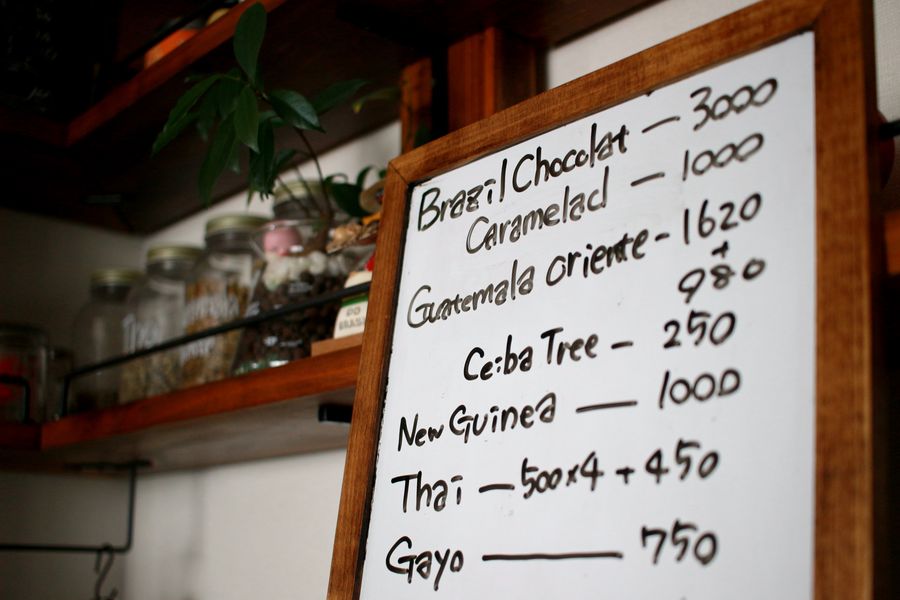 Brazil Chocolat — 3000
Caramelad — 1000
Guatemala Oriente - 1620
+
980
Ceiba Tree — 250
New Guinea — 1000
Thai — 500×4 + 450
Gayo — 750
DO
BRASIL